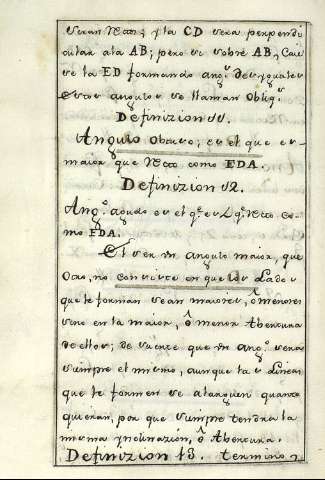 seran Rectos; y la CD sera perpendi
cular ala AB; pero si sobre AB, Caie
se la ED formando ang.s desyguales
estos angulos se llaman Obliq.s
Definizion 11.
Angulo Obtuso; es el que es
maior que Recto como EDA.
Definizion 12.
Ang.o agudo es el q.e es Recto co-
mo EDA.
El ser un angulo maior, que
Otro, no consiste en que los Lados
que le forman sean maiores, ò menores
sino en la maior, ò menor Abertura
de ellos; de suerte que un ang.o sera
siempre el mismo, aunque las Lineas
que le formen se alarguen quanto
quieran, por que siempre tendra la
misma ynclinazion, ò Abertura.
Definizion 13. termino